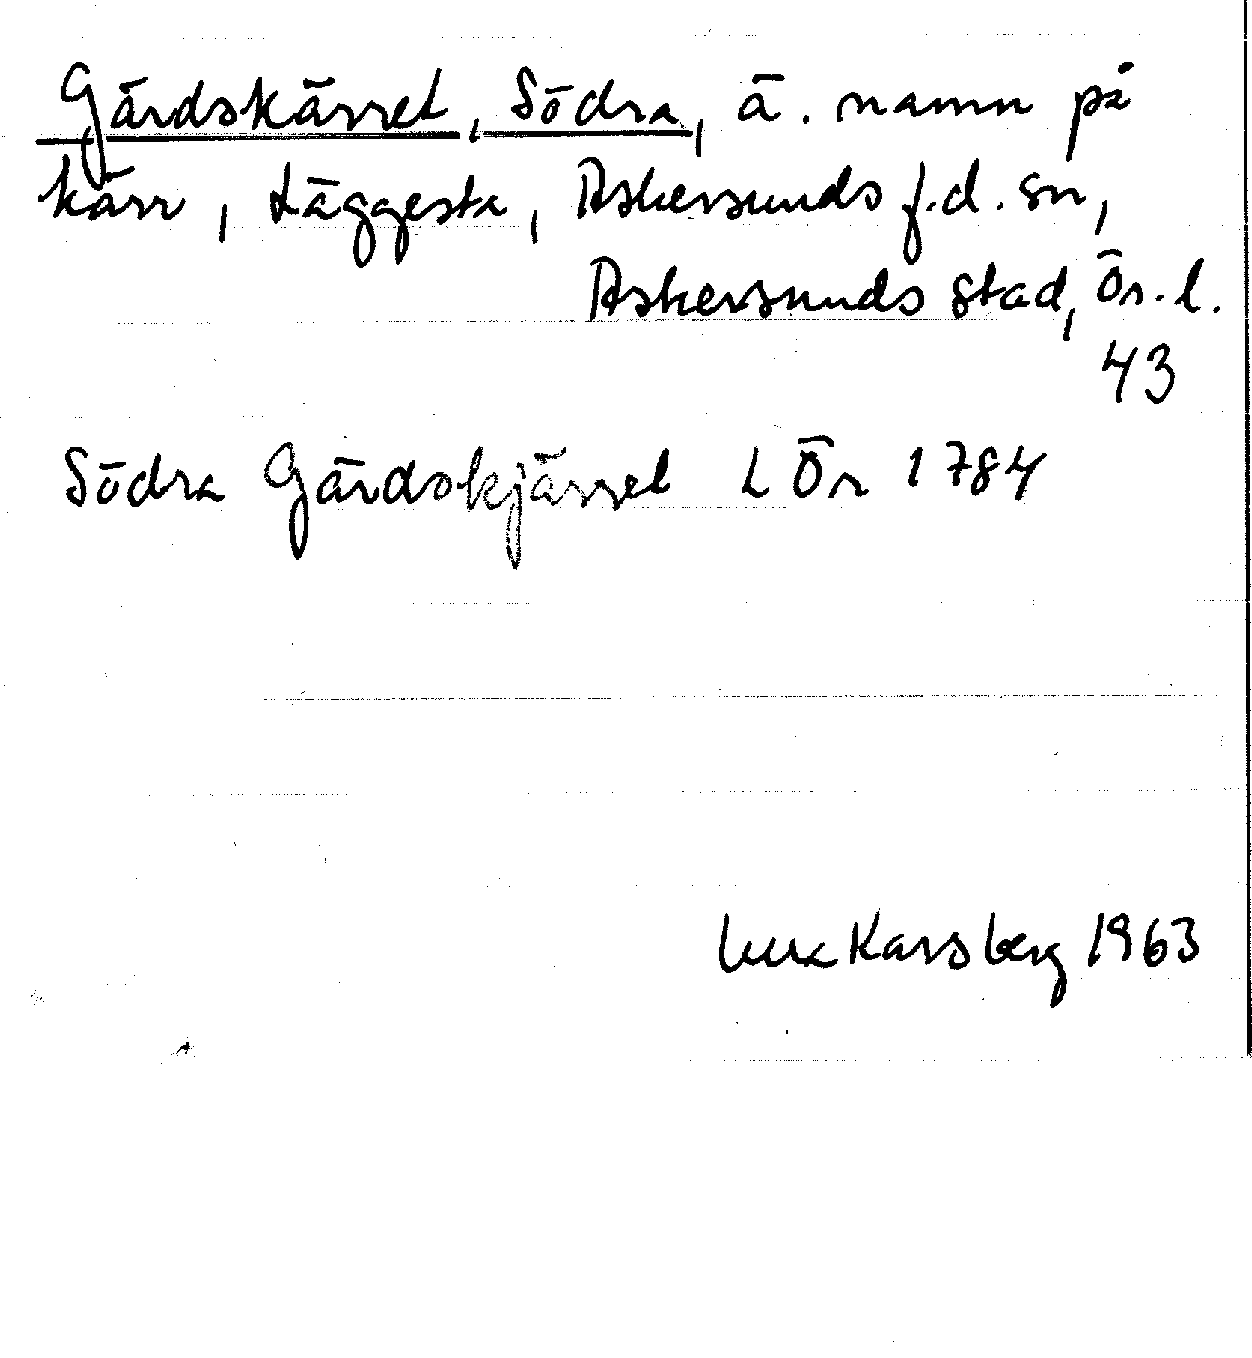 Gärdskärret, Södra, ä. namn på
kärr, Läggesta, Askersunds f.d. sn,
Askersunds stad, Ör. l.
43
Södra Gärdskjärret L Ör 1784
Karsberg 1963